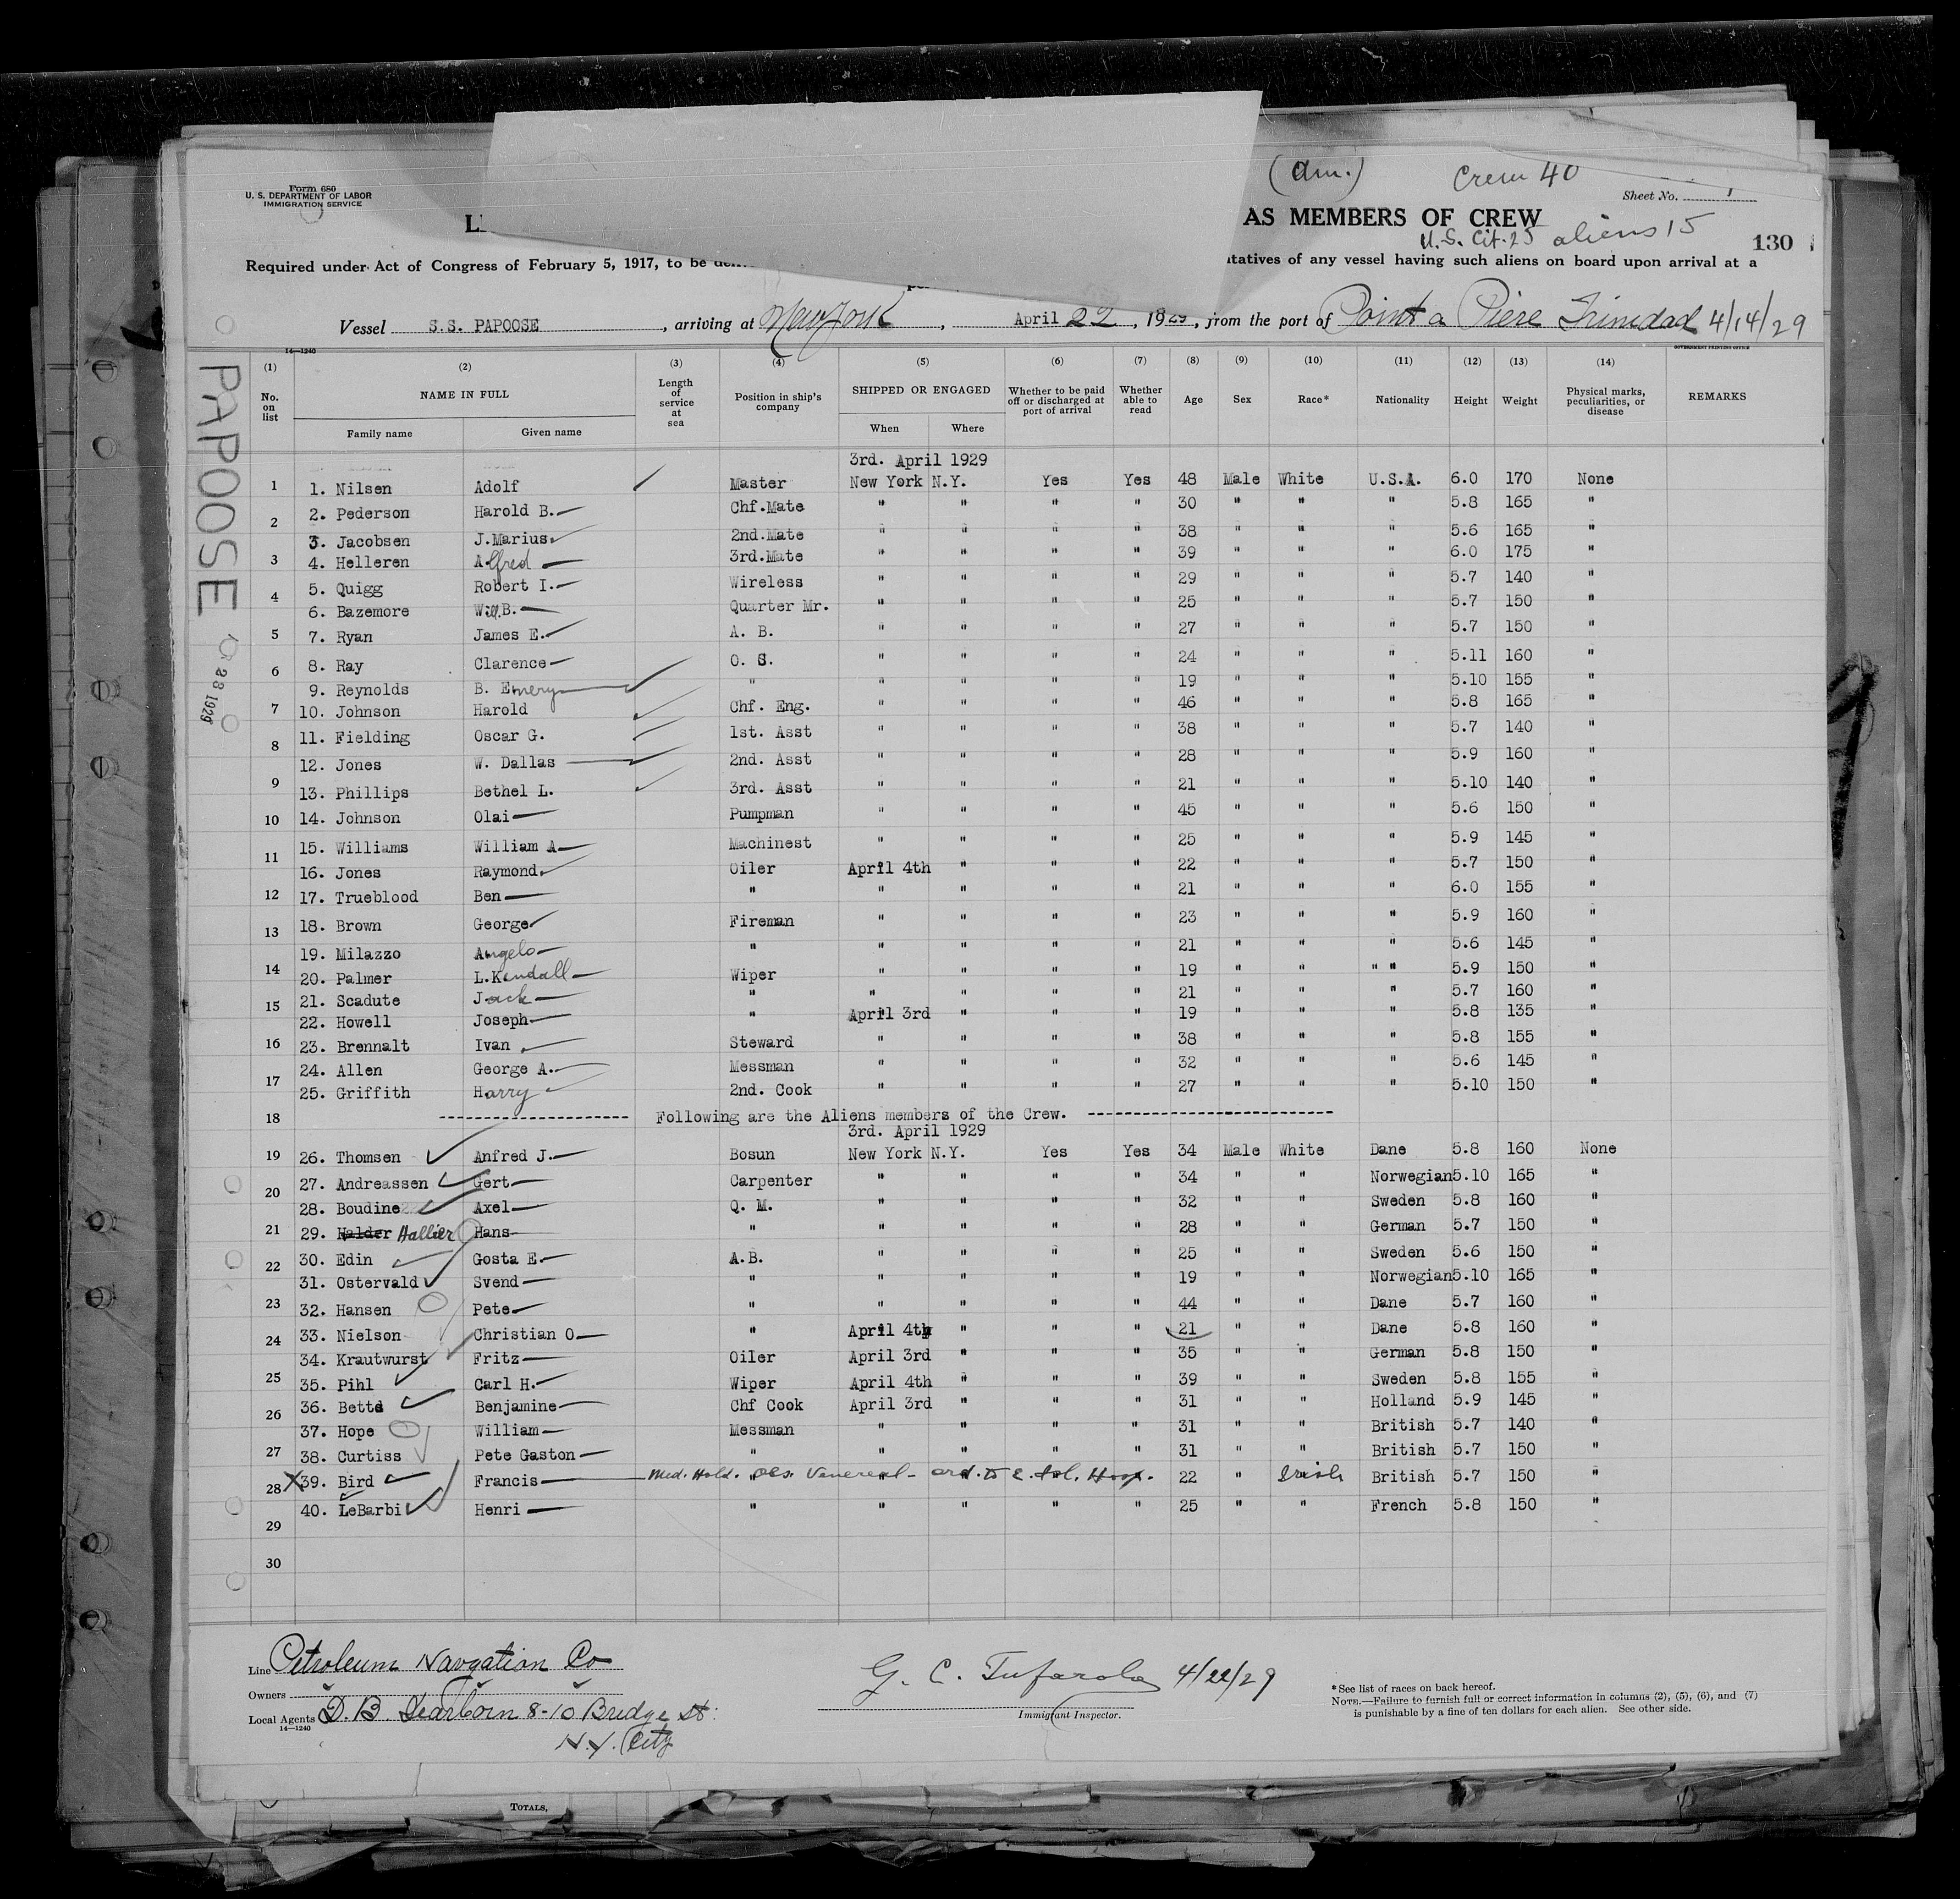 Form 680
U. S. DEPARTMENT OF LABOR
IMMIGRATION SERVICE
(Am.)
Crew 40
Sheet No. 1
AS MEMBERS OF CREW
U.S. Cit. 25 aliens 15
130
Required under Act of Congress of February 5, 1917, to be
tatives of any vessel having such aliens on board upon arrival at a
Vessel S.S. PAPOOSE, arriving at New York, April 22, 1929, from the port of Point a Piere Trinidad 4/14/29
14—1240
GOVERNMENT PRINTING OFFICE
PAPOOSE
23 1929
(1) (2) (3) (4) (5) (6) (7) (8) (9) (10) (11) (12) (13) (14)
No. on list
NAME IN FULL
Family name
Given name
Length of service at sea
Position in ship's company
SHIPPED OR ENGAGED
When
Where
Whether to be paid off or discharged at port of arrival
Whether able to read
Age
Sex
Race*
Nationality
Height
Weight
Physical marks, peculiarities, or disease
REMARKS
3rd. April 1929
1 1. Nilsen Adolf Master New York N.Y. Yes Yes 48 Male White U.S.A. 6.0 170 None
2. Pederson Harold B. Chf.Mate " " " " 30 " " " 5.8 165 "
2 3. Jacobsen J.Marius 2nd.Mate " " " " 38 " " " 5.6 165 "
3 4. Helleren Alfred 3rd.Mate " " " " 39 " " " 6.0 175 "
5. Quigg Robert I. Wireless " " " " 29 " " " 5.7 140 "
4 6. Bazemore Wm.B. Quarter Mr. " " " " 25 " " " 5.7 150 "
5 7. Ryan James E. A. B. " " " " 27 " " " 5.7 150 "
6 8. Ray Clarence O. S. " " " " 24 " " " 5.11 160 "
9. Reynolds B. Emery " " " " " 19 " " " 5.10 155 "
7 10. Johnson Harold Chf. Eng. " " " " 46 " " " 5.8 165 "
8 11. Fielding Oscar G. 1st. Asst " " " " 38 " " " 5.7 140 "
12. Jones W. Dallas 2nd. Asst " " " " 28 " " " 5.9 160 "
9 13. Phillips Bethel L. 3rd. Asst " " " " 21 " " " 5.10 140 "
10 14. Johnson Olai Pumpman " " " " 45 " " " 5.6 150 "
11 15. Williams William A Machinest " " " " 25 " " " 5.9 145 "
16. Jones Raymond. Oiler April 4th " " " 22 " " " 5.7 150 "
12 17. Trueblood Ben " " " " " 21 " " " 6.0 155 "
13 18. Brown George Fireman " " " " 23 " " " 5.9 160 "
19. Milazzo Angelo " " " " " 21 " " " 5.6 145 "
14 20. Palmer L.Kendall Wiper " " " " 19 " " " " 5.9 150 "
15 21. Scadute Jack " " " " " 21 " " " 5.7 160 "
22. Howell Joseph " April 3rd " " " 19 " " " 5.8 135 "
16 23. Brennalt Ivan Steward " " " " 38 " " " 5.8 155 "
24. Allen George A. Messman " " " " 32 " " " 5.6 145 "
17 25. Griffith Harry 2nd. Cook " " " " 27 " " " 5.10 150 "
18 ------------------- Following are the Aliens members of the Crew. -------------------------
3rd. April 1929
19 26. Thomsen Anfred J. Bosun New York N.Y. Yes Yes 34 Male White Dane 5.8 160 None
20 27. Andreassen Gert Carpenter " " " " 34 " " Norwegian 5.10 165 "
28. Boudine Axel Q. M. " " " " 32 " " Sweden 5.8 160 "
21 29. Halder Hallier Hans " " " " " 28 " " German 5.7 150 "
22 30. Edin Gosta E. A.B. " " " " 25 " " Sweden 5.6 150 "
31. Ostervald Svend " " " " " 19 " " Norwegian 5.10 165 "
23 32. Hansen Pete " " " " " 44 " " Dane 5.7 160 "
24 33. Nielson Christian O " April 4th " " " 21 " " Dane 5.8 160 "
34. Krautwurst Fritz Oiler April 3rd " " " 35 " " German 5.8 150 "
25 35. Pihl Carl H. Wiper April 4th " " " 39 " " Sweden 5.8 155 "
26 36. Betts Benjamine Chf Cook April 3rd " " " 31 " " Holland 5.9 145 "
37. Hope William Messman " " " " 31 " " British 5.7 140 "
27 38. Curtiss Pete Gaston " " " " " 31 " " British 5.7 150 "
28 X 39. Bird Francis Med. Hold. Venereal - ord. to E. Isl. Hosp. 22 " Irish British 5.7 150 "
40. LeBarbi Henri " " " " " 25 " " French 5.8 150 "
29
30
Line Petroleum Navgation Co
Owners
Local Agents D.B. Dearborn 8-10 Bridge St.
14—1240
N.Y. City
G. C. Tufarolo 4/22/29
Immigrant Inspector.
* See list of races on back hereof.
NOTE.—Failure to furnish full or correct information in columns (2), (5), (6), and (7)
is punishable by a fine of ten dollars for each alien. See other side.
TOTALS,